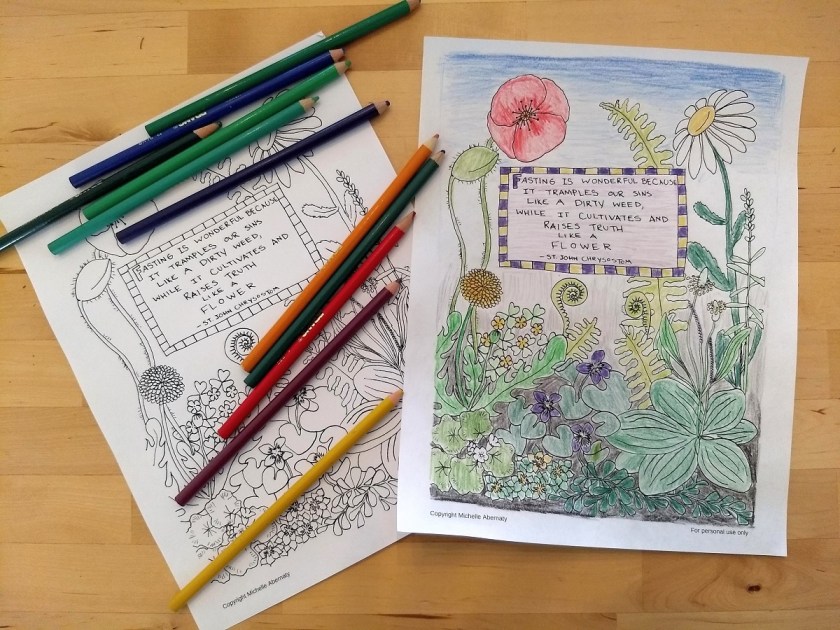 FASTING IS WONDERFUL BECAUSE
IT TRAMPLES OUR SINS
LIKE A DIRTY WEED,
WHILE IT CULTIVATES AND
RAISES TRUTH
LIKE A
FLOWER
-ST. JOHN CHRYSOSTOM
Copyright Michelle Abernaty
FASTING IS WONDERFUL BECAUSE
IT TRAMPLES OUR SINS
LIKE A DIRTY WEED,
WHILE IT CULTIVATES AND
RAISES TRUTH
LIKE A
FLOWER
-ST. JOHN CHRYSOSTOM
Copyright Michelle Abernaty
For personal use only